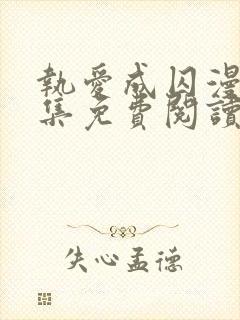 執愛成囚漫
集免費閱讀
失心孟德